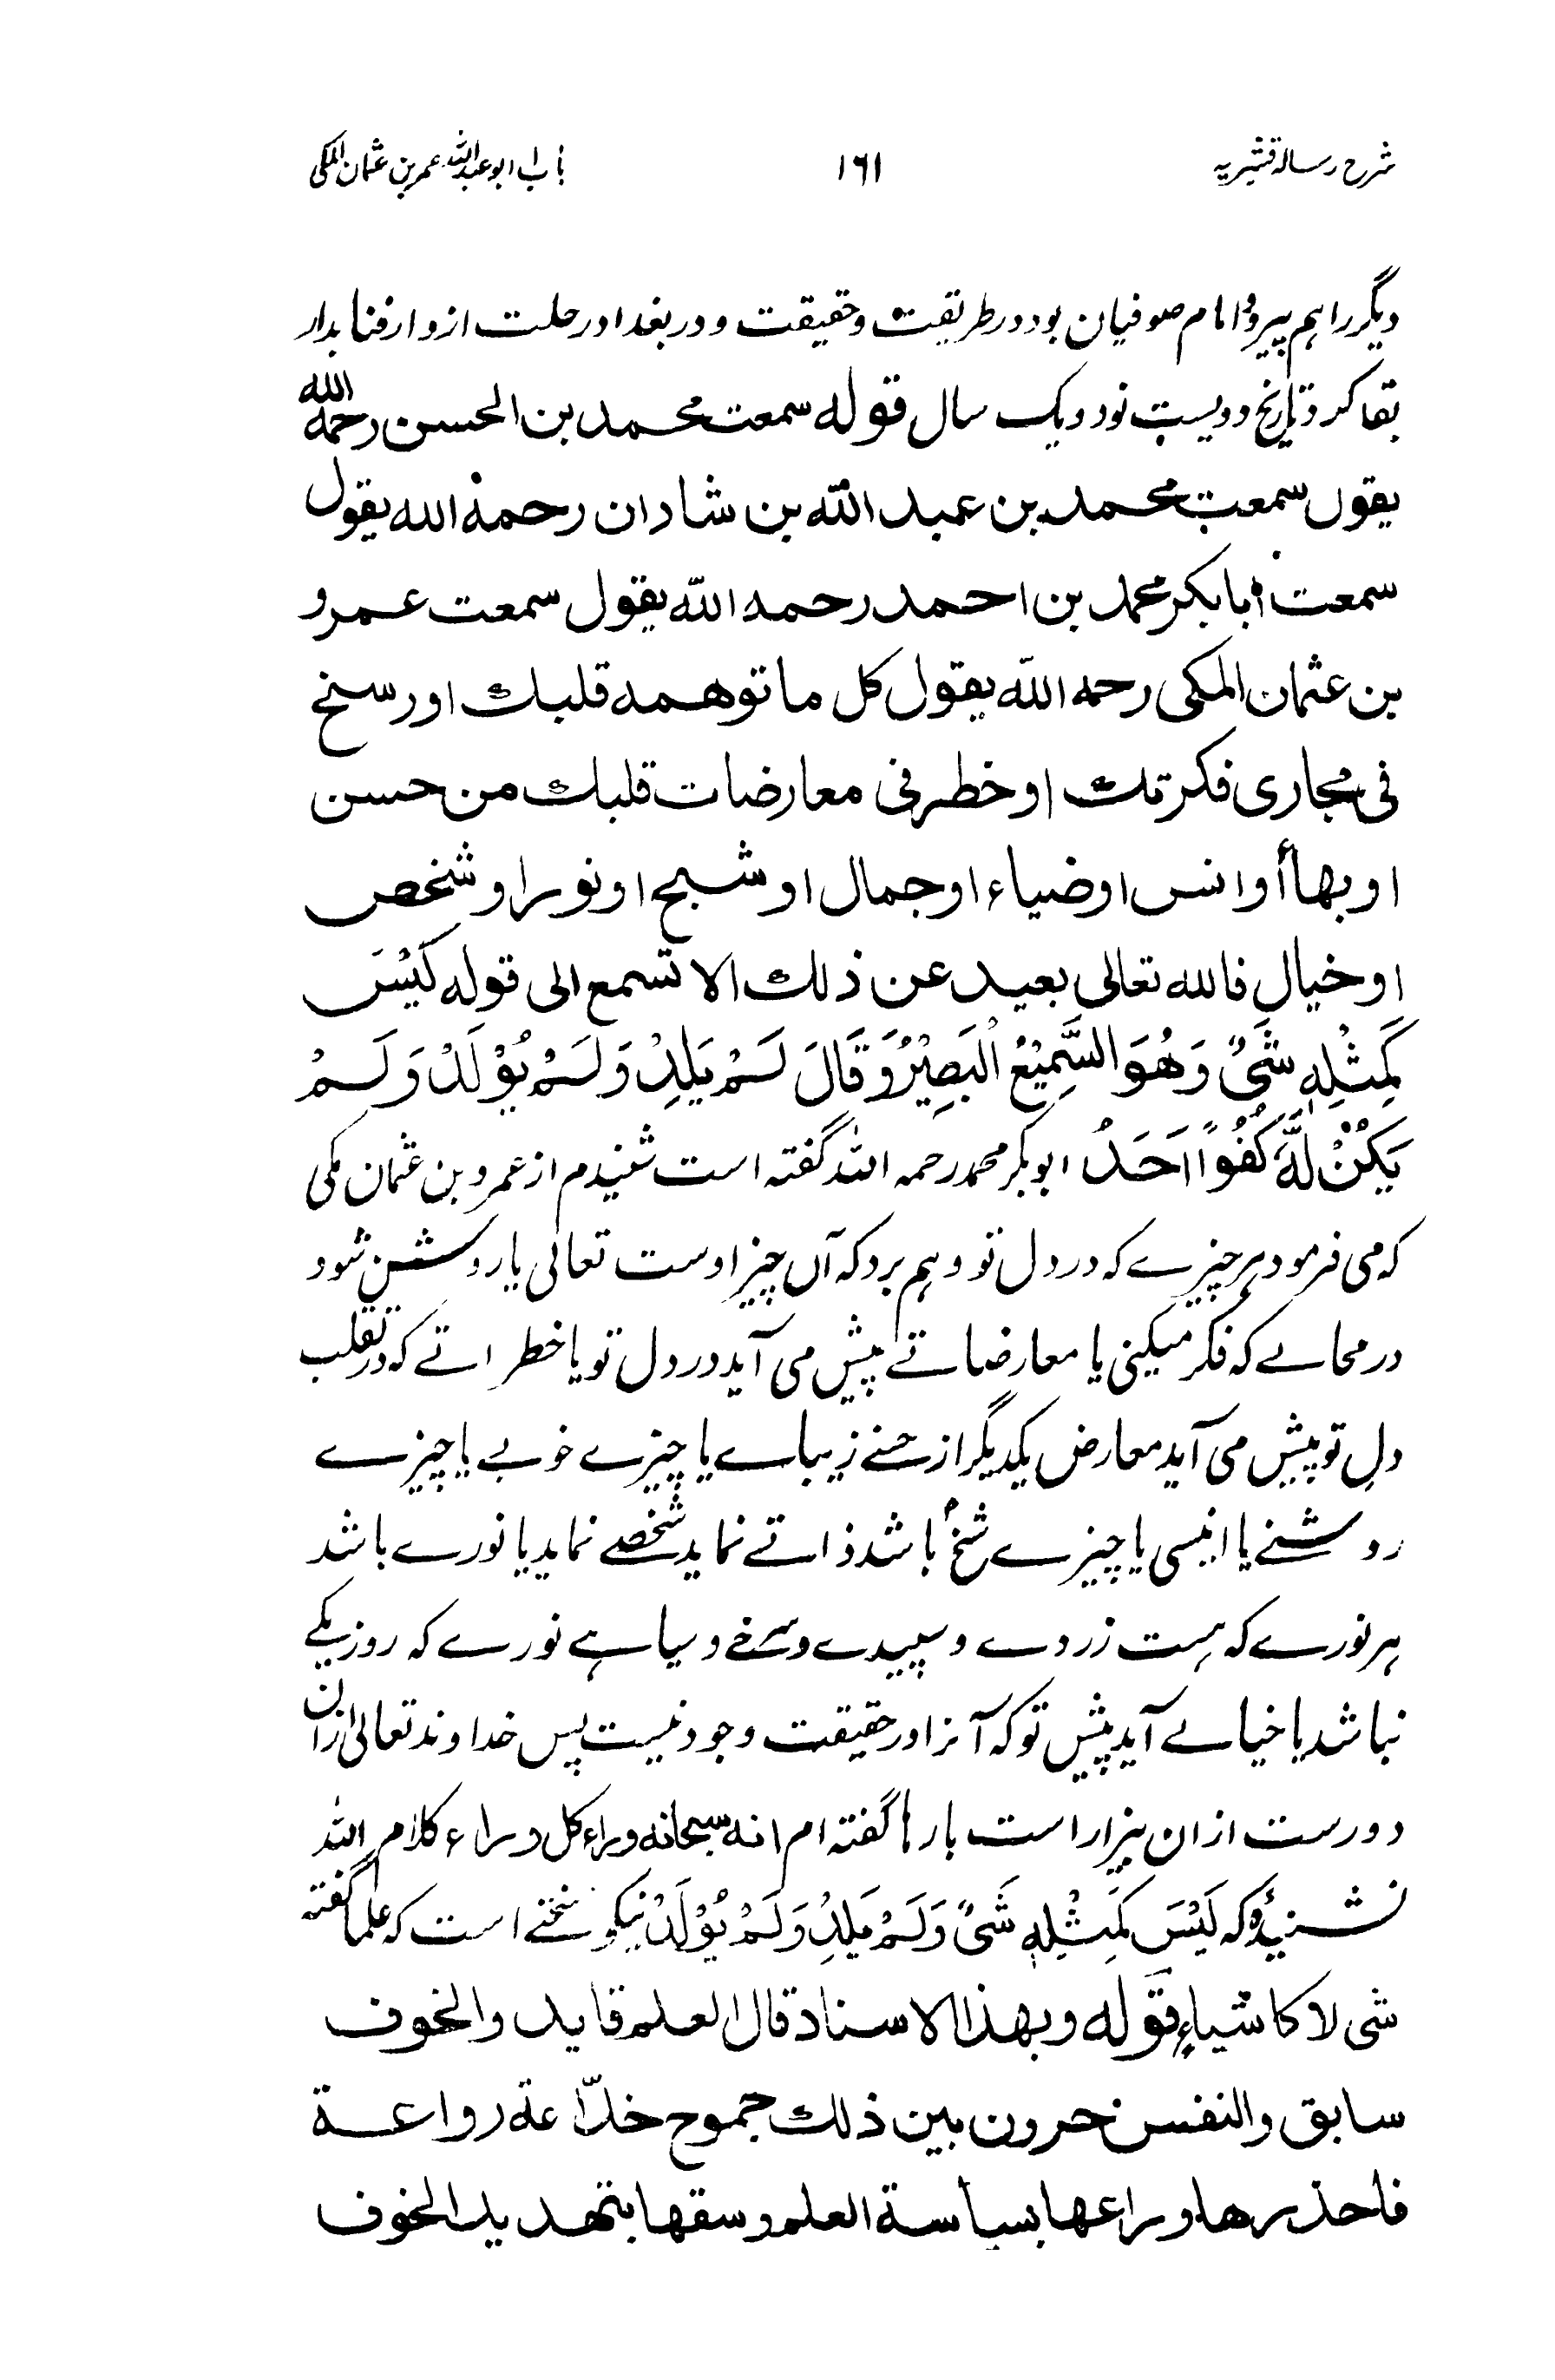 شرح رسالہ قشیریہ
۱۶۱
باب ابو عبداللہ عمر بن عثمان المکی
دیگر را ہم پیرو امام صوفیان بود در طریقت و حقیقت و در بغداد رحلت از دار فنا بدار
بقا کرد تاریخ دویست نود و یک سال قوله سمعت محمد بن الحسن رحمه الله
يقول سمعت محمد بن عبد الله بن شاذان رحمة الله يقول
سمعت ابا بكر محمد بن احمد رحمه الله يقول سمعت عمرو
بن عثمان المكي رحمه الله يقول كل ما توهمه قلبك او رسخ
فى مجارى فكرتك او خطر فى معارضات قلبك من حسن
او بهاأ وانس او ضياء او جمال او شبح او نور او شخص
او خيال فالله تعالى بعيد عن ذلك الا تسمع الى قوله لَيْسَ
كَمِثْلِهٖ شَىْءٌ وَهُوَ السَّمِيْعُ الْبَصِيْرُ وَقَالَ لَمْ يَلِدْ وَلَمْ يُوْلَدْ وَلَمْ
يَكُنْ لَّهٗ كُفُوًا اَحَدٌ ابو بکر محمد رحمہ اللہ گفتہ است شنیدم از عمرو بن عثمان مکی
کہ می فرمود ہر چیزے کہ در دل تو وہم برد کہ آں چیز اوست تعالی یا روشن شود
در محالے کہ فکر میکنی یا معارضاتے پیش می آید در دل تو یا خطراتے کہ در تقلب
دلِ تو پیش می آید معارض یکدیگر از حسنے زیبائے یا چیزے خوبے یا چیزے
روشنے یا انیسی یا چیزے شخ باشد ذاتے نماید شخصے نماید یا نورے باشد
ہر نورے کہ ہست زردے و سپیدے و سرخے و سیاہے نورے کہ روز یکے
نباشد یا خیالے آید پیش تو کہ آنرا در حقیقت وجود نیست پس خداوند تعالی ازان
دورست ازان بیزار است بارہا گفتہ ام انه سبحانه وراء كل وراء كلام الله
نشنیدۂ کہ لَيْسَ كَمِثْلِهٖ شَىْءٌ وَلَمْ يَلِدْ وَلَمْ يُوْلَدْ نیکو سخنے است کہ علما گفتہ
شى لا كاشياءٍ قوله وبهذا الاسناد قال العلم قايد والخوف
سابق والنفس حرون بين ذلك جموح خدّاعة رواعة
فاحذرها وراعها بسياسة العلم وسقها بتهديد الخوف